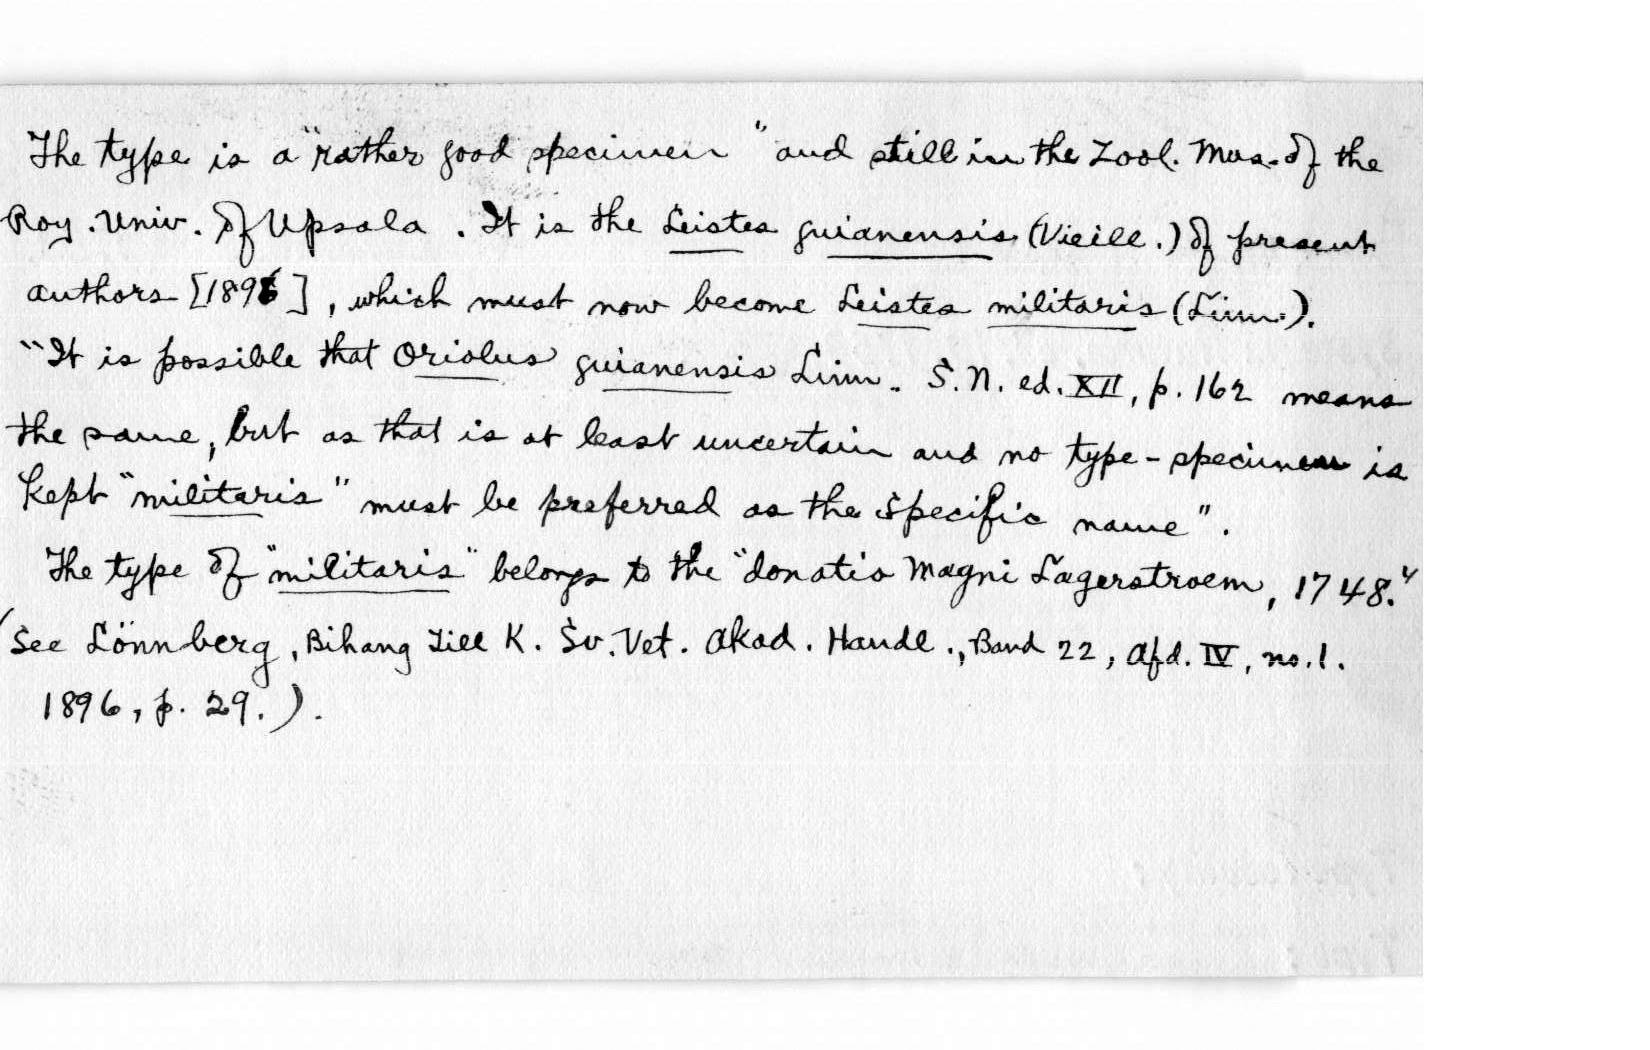 The type is a "rather good specimen" and still in the Zool. Mus. of the
Roy. Univ. of Upsala. It is the Leistes guianensis (Vieill.) of present
authors [1896], which must now become Leistes militaris (Linn.).
"It is possible that Oriolus guianensis Linn. S.N. ed. XII, p. 162 means
the same, but as that is at least uncertain and no type-specimen is
kept "militaris" must be preferred as the specific name".
The type of "militaris" belongs to the "donatio Magni Lagerstroem, 1748."
(See Lönnberg, Bihang Till K. Sv. Vet. Akad. Handl., Band 22, Afd. IV, no. 1.
1896, p. 29.).